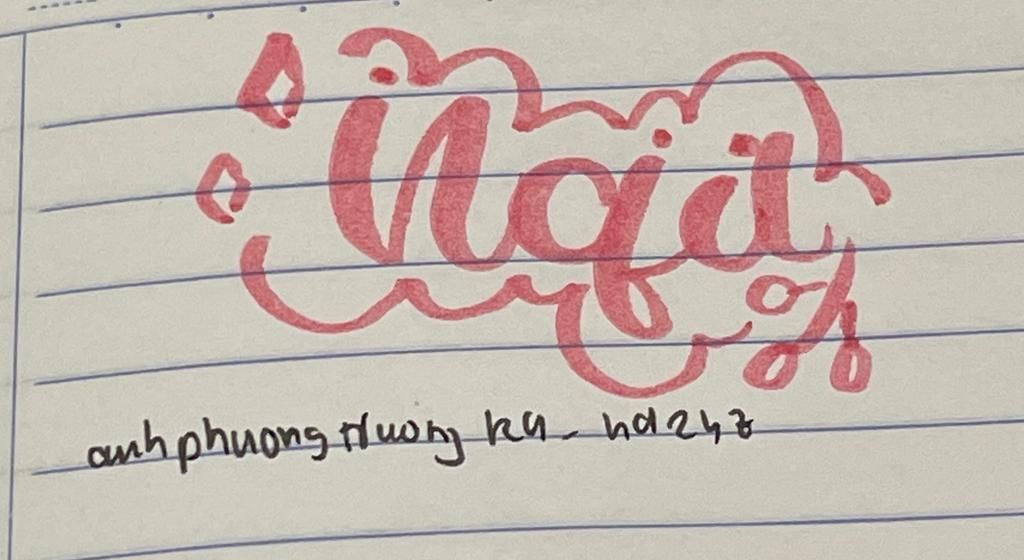 Nga
anhphuong truong ka - hd24z